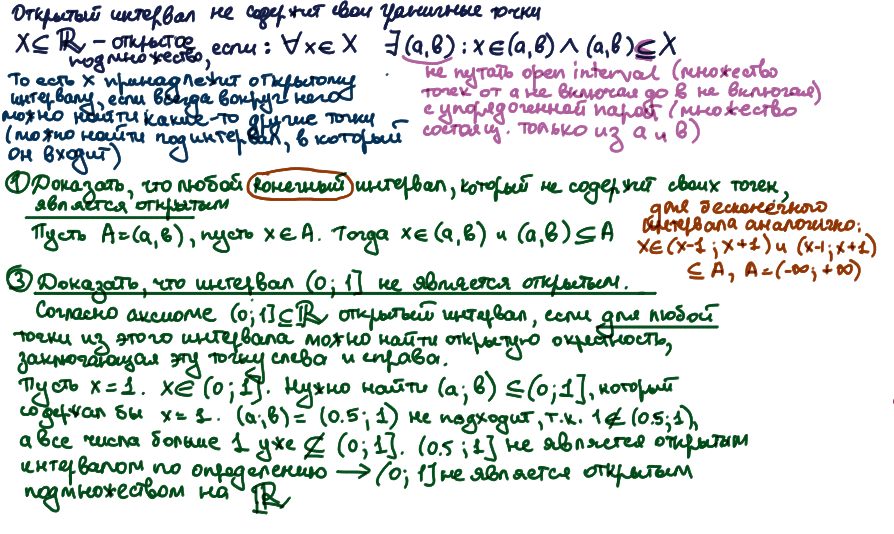 Открытый интервал не содержит свои граничные точки
X⊆ℝ – открытое подмножество, если: ∀x∈X ∃(a,b): x∈(a,b) ∧ (a,b)⊆X
То есть x принадлежит открытому
интервалу, если всегда вокруг него
можно найти какие-то другие точки
(можно найти подинтервал, в который
он входит)
не путать open interval (множество
точек от a не включая до b не включая)
с упорядоченной парой (множество
состоящ. только из a и b)
① Доказать, что любой конечный интервал, который не содержит своих точек,
является открытым
Пусть A=(a,b), пусть x∈A. Тогда x∈(a,b) и (a,b)⊆A
для бесконечного
интервала аналогично:
x∈(x-1; x+1) и (x-1; x+1)
⊆A, A=(-∞; +∞)
③ Доказать, что интервал (0; 1] не является открытым.
Согласно аксиоме (0; 1]⊆ℝ открытый интервал, если для любой
точки из этого интервала можно найти открытую окрестность,
заключающая эту точку слева и справа.
Пусть x=1. x∈(0; 1]. Нужно найти (a; b) ⊆(0; 1], который
содержал бы x=1. (a; b)=(0.5; 1) не подходит, т.к. 1∉(0.5; 1),
а все числа больше 1 уже ⊈ (0; 1]. (0.5; 1] не является открытым
интервалом по определению → (0; 1] не является открытым
подмножеством на ℝ